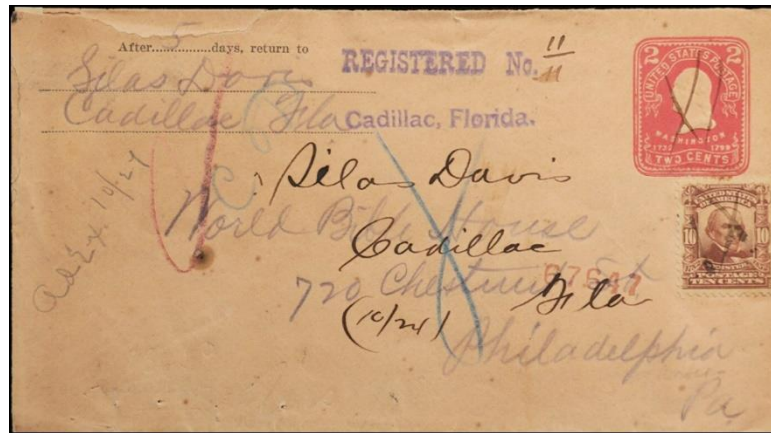 After 5 days, return to
Silas Davis
Cadillac Fla
REGISTERED No. 11
11
Cadillac, Florida.
2 2
UNITED STATES POSTAGE
WASHINGTON
1732 1799
TWO CENTS
UNITED STATES OF AMERICA
10 10
POSTAGE
TEN CENTS
Silas Davis
Cadillac
Fla
(10/24)
World Bible House
720 Chestnut St
Philadelphia
Pa
10/24